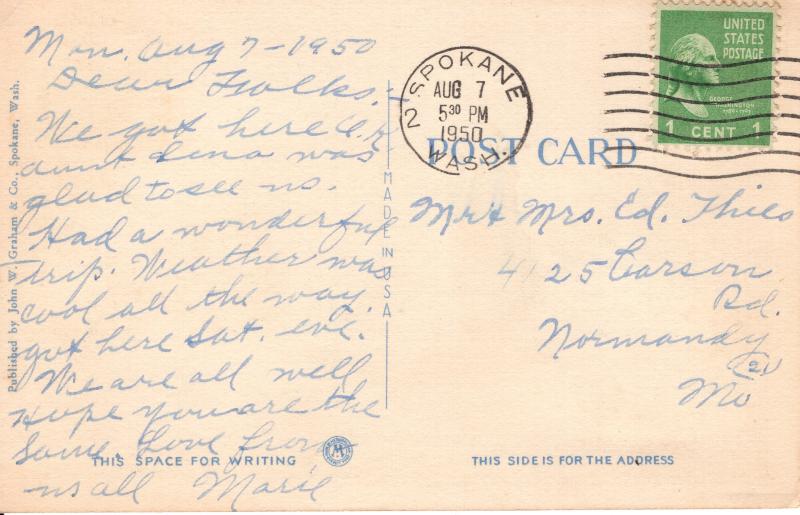 Mon. Aug 7-1950
Dear Folks:-
We got here O.K.
aunt Lena was
glad to see us.
Had a wonderful
trip. Weather was
cool all the way.
got here Sat. eve.
We are all well
Hope you are the
same. Love from
us all Marie
Published by John W. Graham & Co., Spokane, Wash.
THIS SPACE FOR WRITING
MADE IN USA
SPOKANE
AUG 7
5 30 PM
1950
WASH.
2
UNITED
STATES
POSTAGE
GEORGE
WASHINGTON
1 CENT 1
POST CARD
Mr & Mrs. Ed. Thies
4125 Carson
Rd.
Normandy
Mo
THIS SIDE IS FOR THE ADDRESS